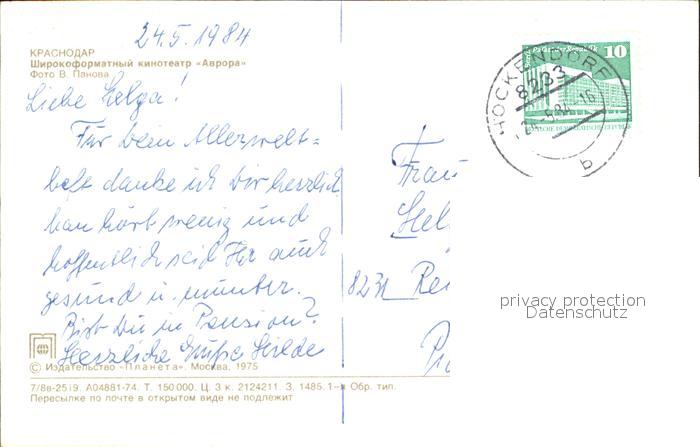 24.5.1984
КРАСНОДАР
Широкоформатный кинотеатр «Аврора»
Фото В. Панова
Liebe Helga!
Für Dein Allerwelt=
heft danke ich Dir herzlich
man hört wenig und
hoffentlich seid Ihr auch
gesund u. munter.
Bist Du in Pension?
Herzliche Grüße Hilde
© Издательство «Планета». Москва, 1975
7/8в-2519. А04881-74. Т. 150 000. Ц. 3 к. 2124211. З. 1485. 1-я Обр. тип.
Пересылке по почте в открытом виде не подлежит
10
HOCKENDORF
8233
b
DEUTSCHE DEMOKRATISCHE REPUBLIK
Frau
Hel
8231 Rei
privacy protection
Datenschutz